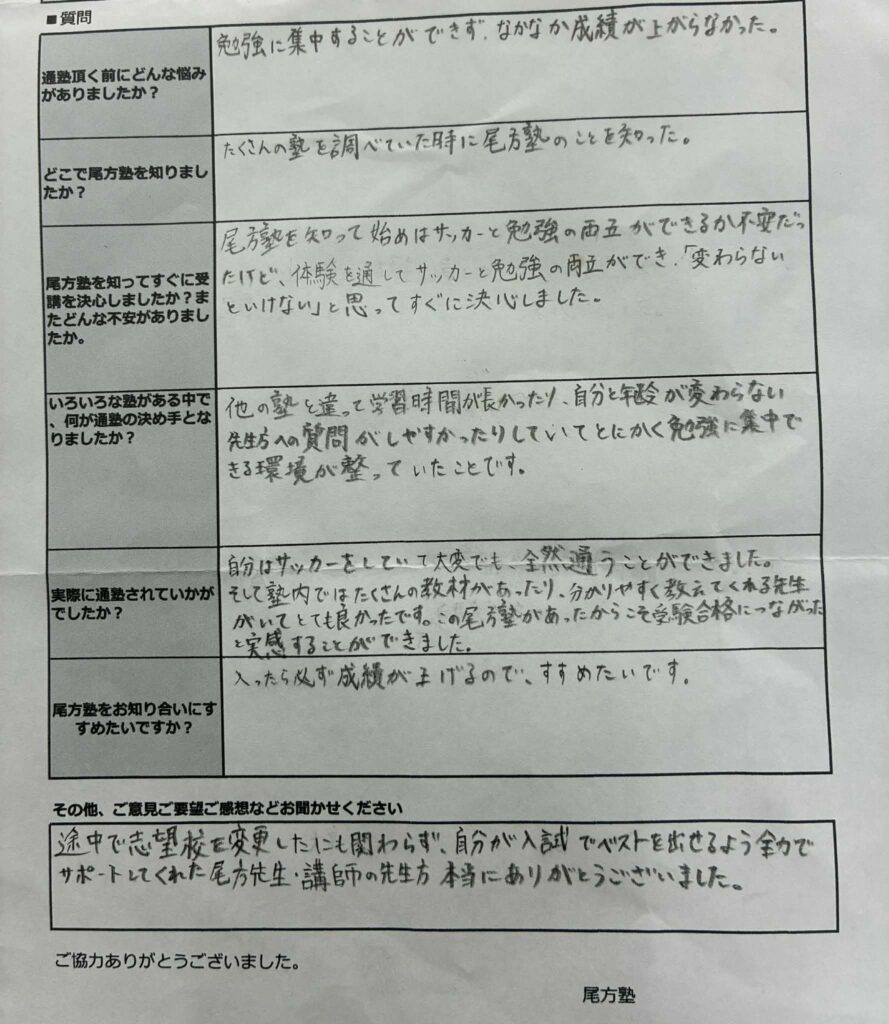 ■質問
通塾頂く前にどんな悩み
がありましたか？
勉強に集中することができず、なかなか成績が上がらなかった。
どこで尾方塾を知りまし
たか？
たくさんの塾を調べていた時に尾方塾のことを知った。
尾方塾を知ってすぐに受
講を決心しましたか？ま
たどんな不安がありまし
たか。
尾方塾を知って始めはサッカーと勉強の両立ができるか不安だっ
たけど、体験を通してサッカーと勉強の両立ができ、「変わらない
といけない」と思ってすぐに決心しました。
いろいろな塾がある中で
、何が通塾の決め手とな
りましたか？
他の塾と違って学習時間が長かったり、自分と年齢が変わらない
先生方への質問がしやすかったりしていてとにかく勉強に集中で
きる環境が整っていたことです。
実際に通塾されていかが
でしたか？
自分はサッカーをしていて大変でも、全然通うことができました。
そして塾内ではたくさんの教材があったり、分かりやすく教えてくれる先生
がいてとても良かったです。この尾方塾があったからこそ受験合格につながった
と実感することができました。
尾方塾をお知り合いにす
すめたいですか？
入ったら必ず成績が上げるので、すすめたいです。
その他、ご意見ご要望ご感想などお聞かせください
途中で志望校を変更したにも関わらず、自分が入試でベストを出せるよう全力で
サポートしてくれた尾方先生・講師の先生方 本当にありがとうございました。
ご協力ありがとうございました。
尾方塾